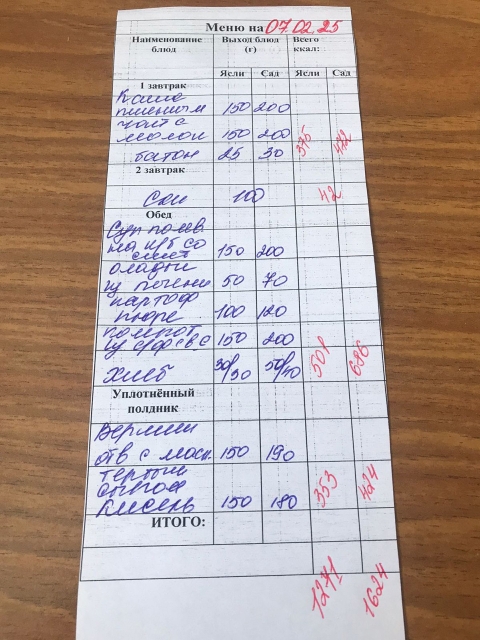 Меню на 07.02.25
Наименование блюд Выход блюд (г) Всего ккал:
Ясли Сад Ясли Сад
1 завтрак
Каша
150 200
чай с
молок 150 200 375 472
батон 25 30
2 завтрак
Сок 100 42
Обед
Суп
на к/б со
смет 150 200
оладьи
из печени 50 70
картоф
пюре 100 120
компот
из с/ф 150 200
хлеб 30/30 50/40 501 686
Уплотнённый
полдник
Вермиш
отв с масл 150 190
тертым
сыром 353 424
кисель 150 180
ИТОГО:
1271 1624